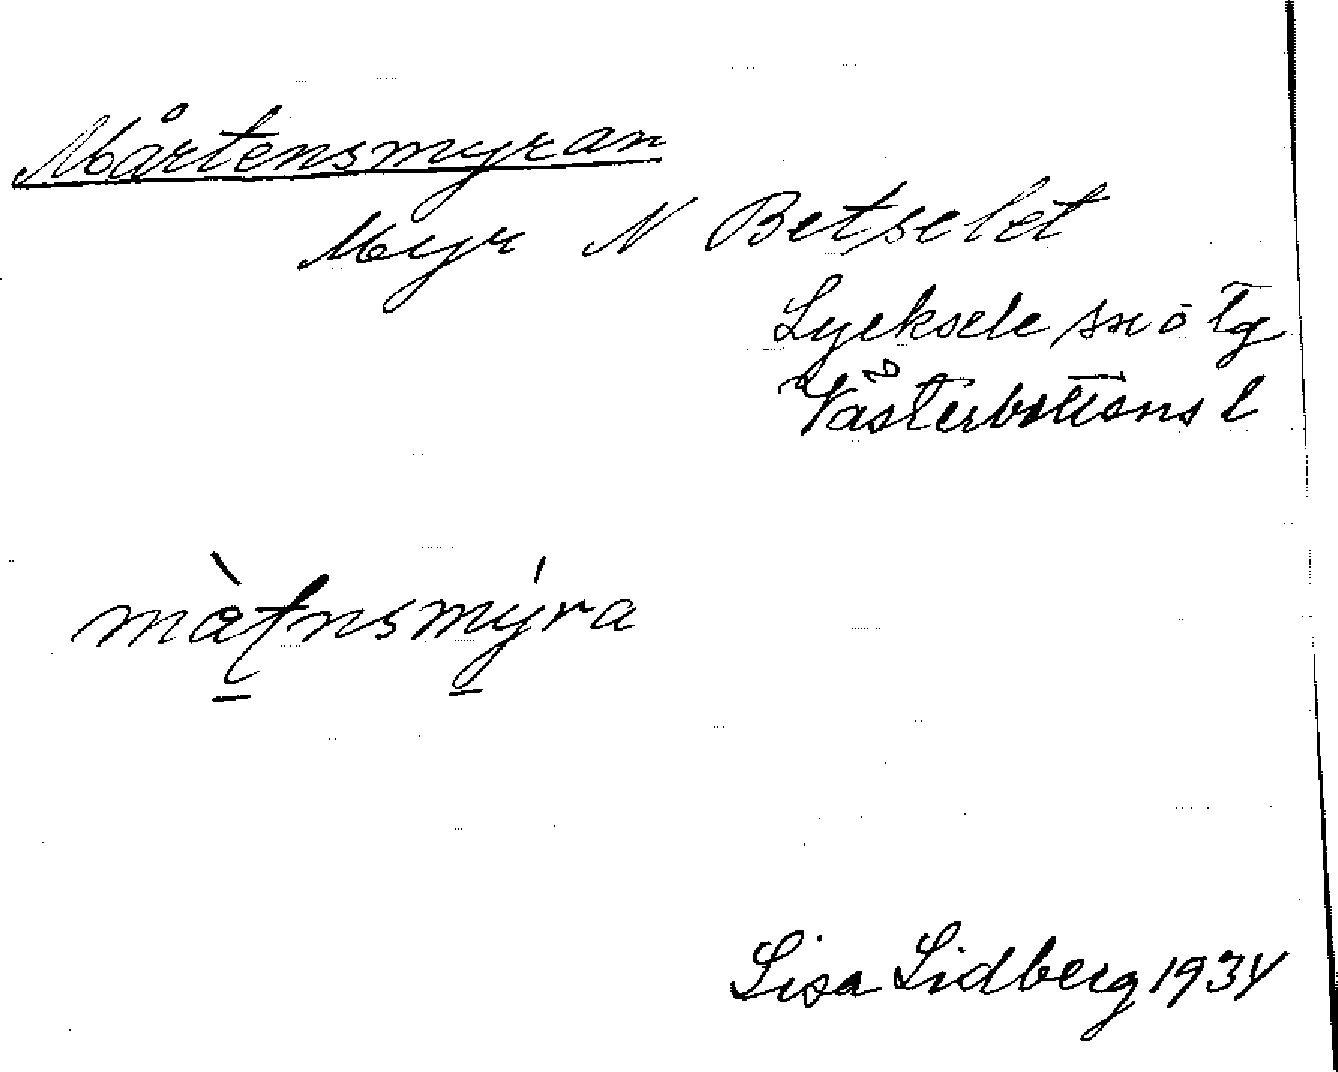 Mårtensmyran
Myr N Betselet
Lycksele sn o tg
Västerbottens l
màʈnsmýra
Lisa Lidberg 1934